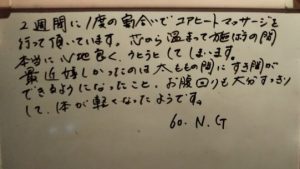 2週間に1度の割合でコアヒートマッサージを
行って頂いています。芯から温まって施術の間
本当に心地良く、うとうとしてしまいます。
最近嬉しかったのは太ももの間にすき間が
できるようになったこと。お腹回りも大分すっきり
して、体が軽くなったようです。
60. N.G